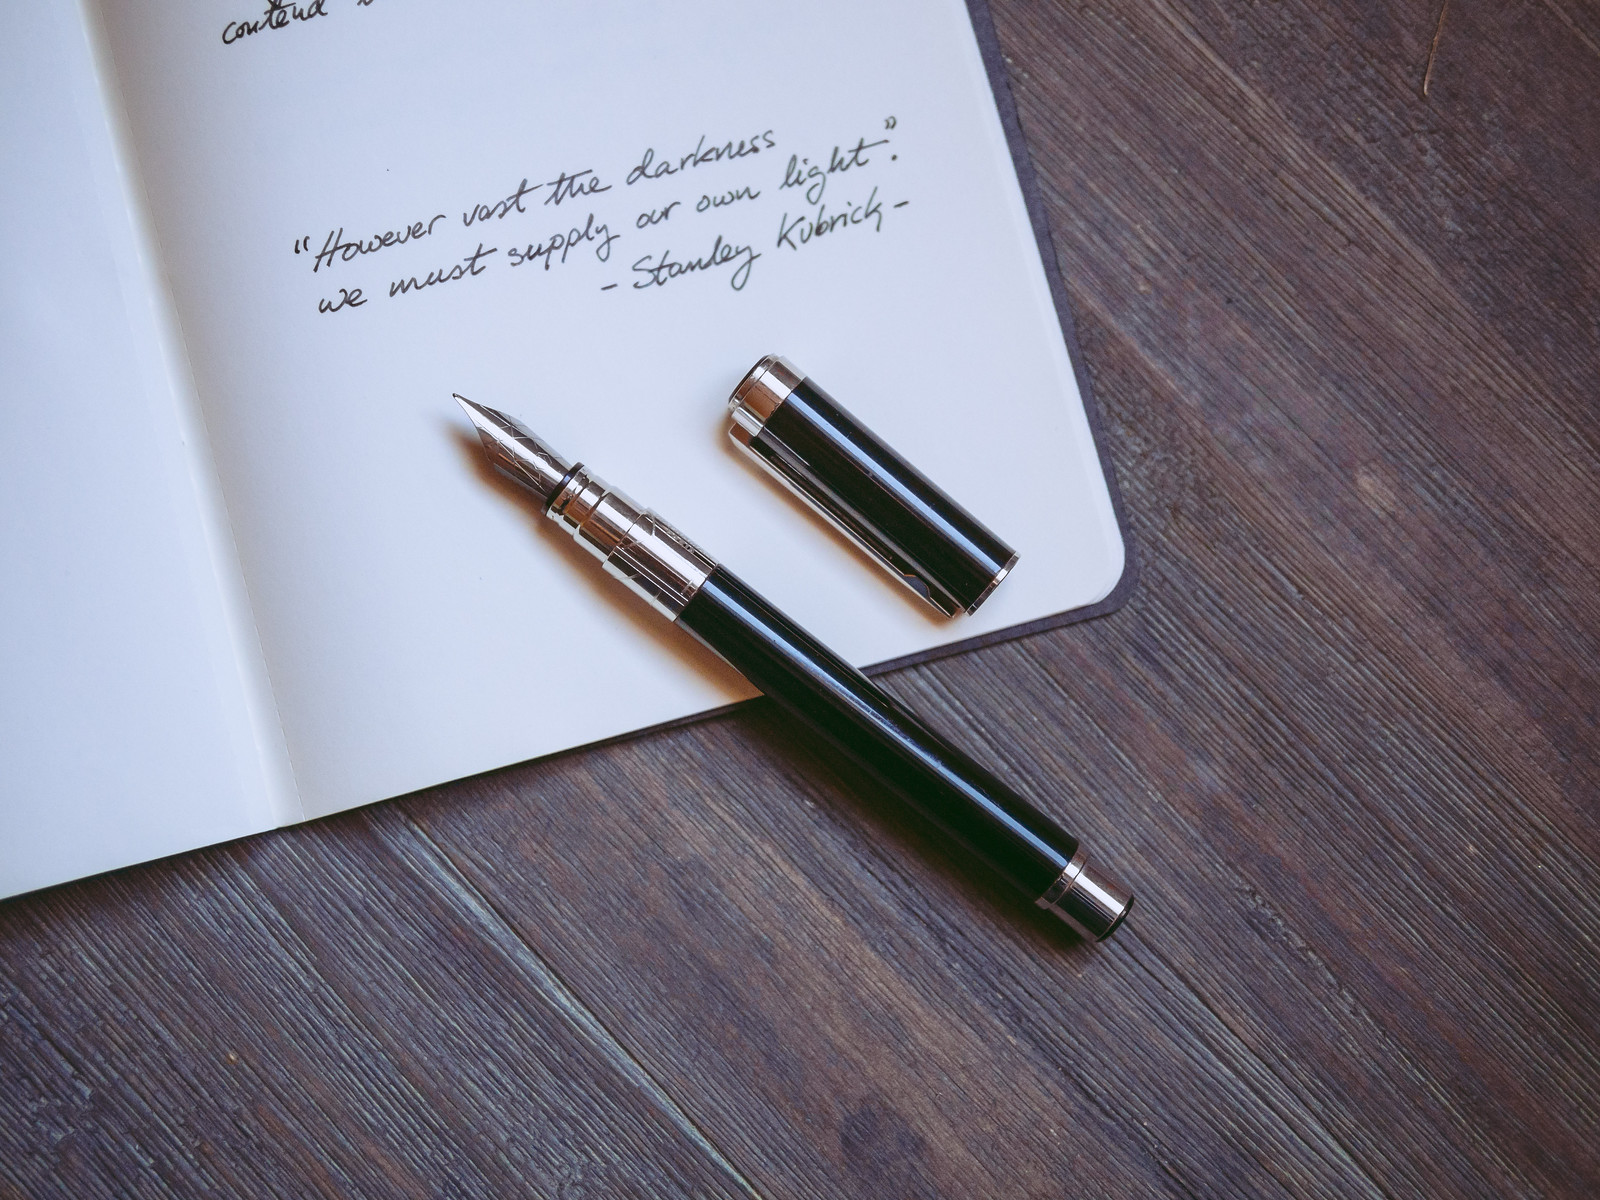 contend
“However vast the darkness
we must supply our own light”.
- Stanley Kubrick -